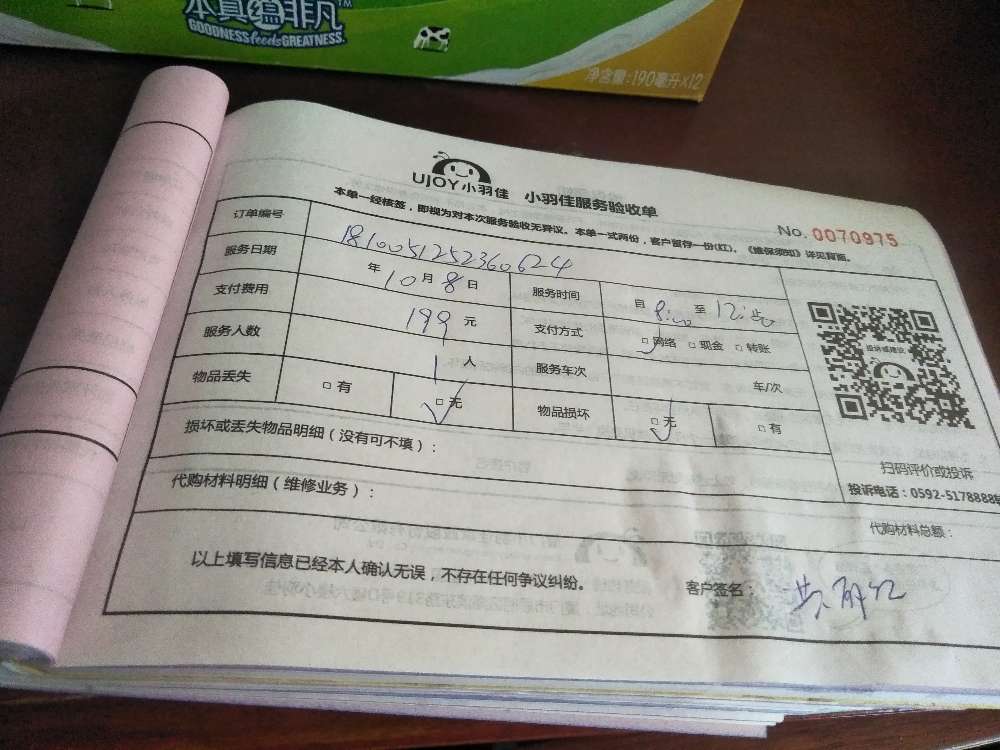 本真蕴非凡™
GOODNESS feeds GREATNESS.
净含量:190毫升×12
UJOY小羽佳 小羽佳服务验收单
No. 0070975
本单一经核签，即视为对本次服务验收无异议。本单一式两份，客户留存一份(红)。《维保须知》详见背面。
订单编号 1810051252360624
服务日期 年 10 月 8 日 服务时间 自 8:00 至 12:00
支付费用 199 元 支付方式 □网络 □现金 □转账
服务人数 1 人 服务车次 车/次
物品丢失 □有 □无 物品损坏 □无 □有
投诉或建议
扫码评价或投诉
投诉电话：0592-5178888
损坏或丢失物品明细（没有可不填）：
代购材料明细（维修业务）：
代购材料总额：
以上填写信息已经本人确认无误，不存在任何争议纠纷。
客户签名：